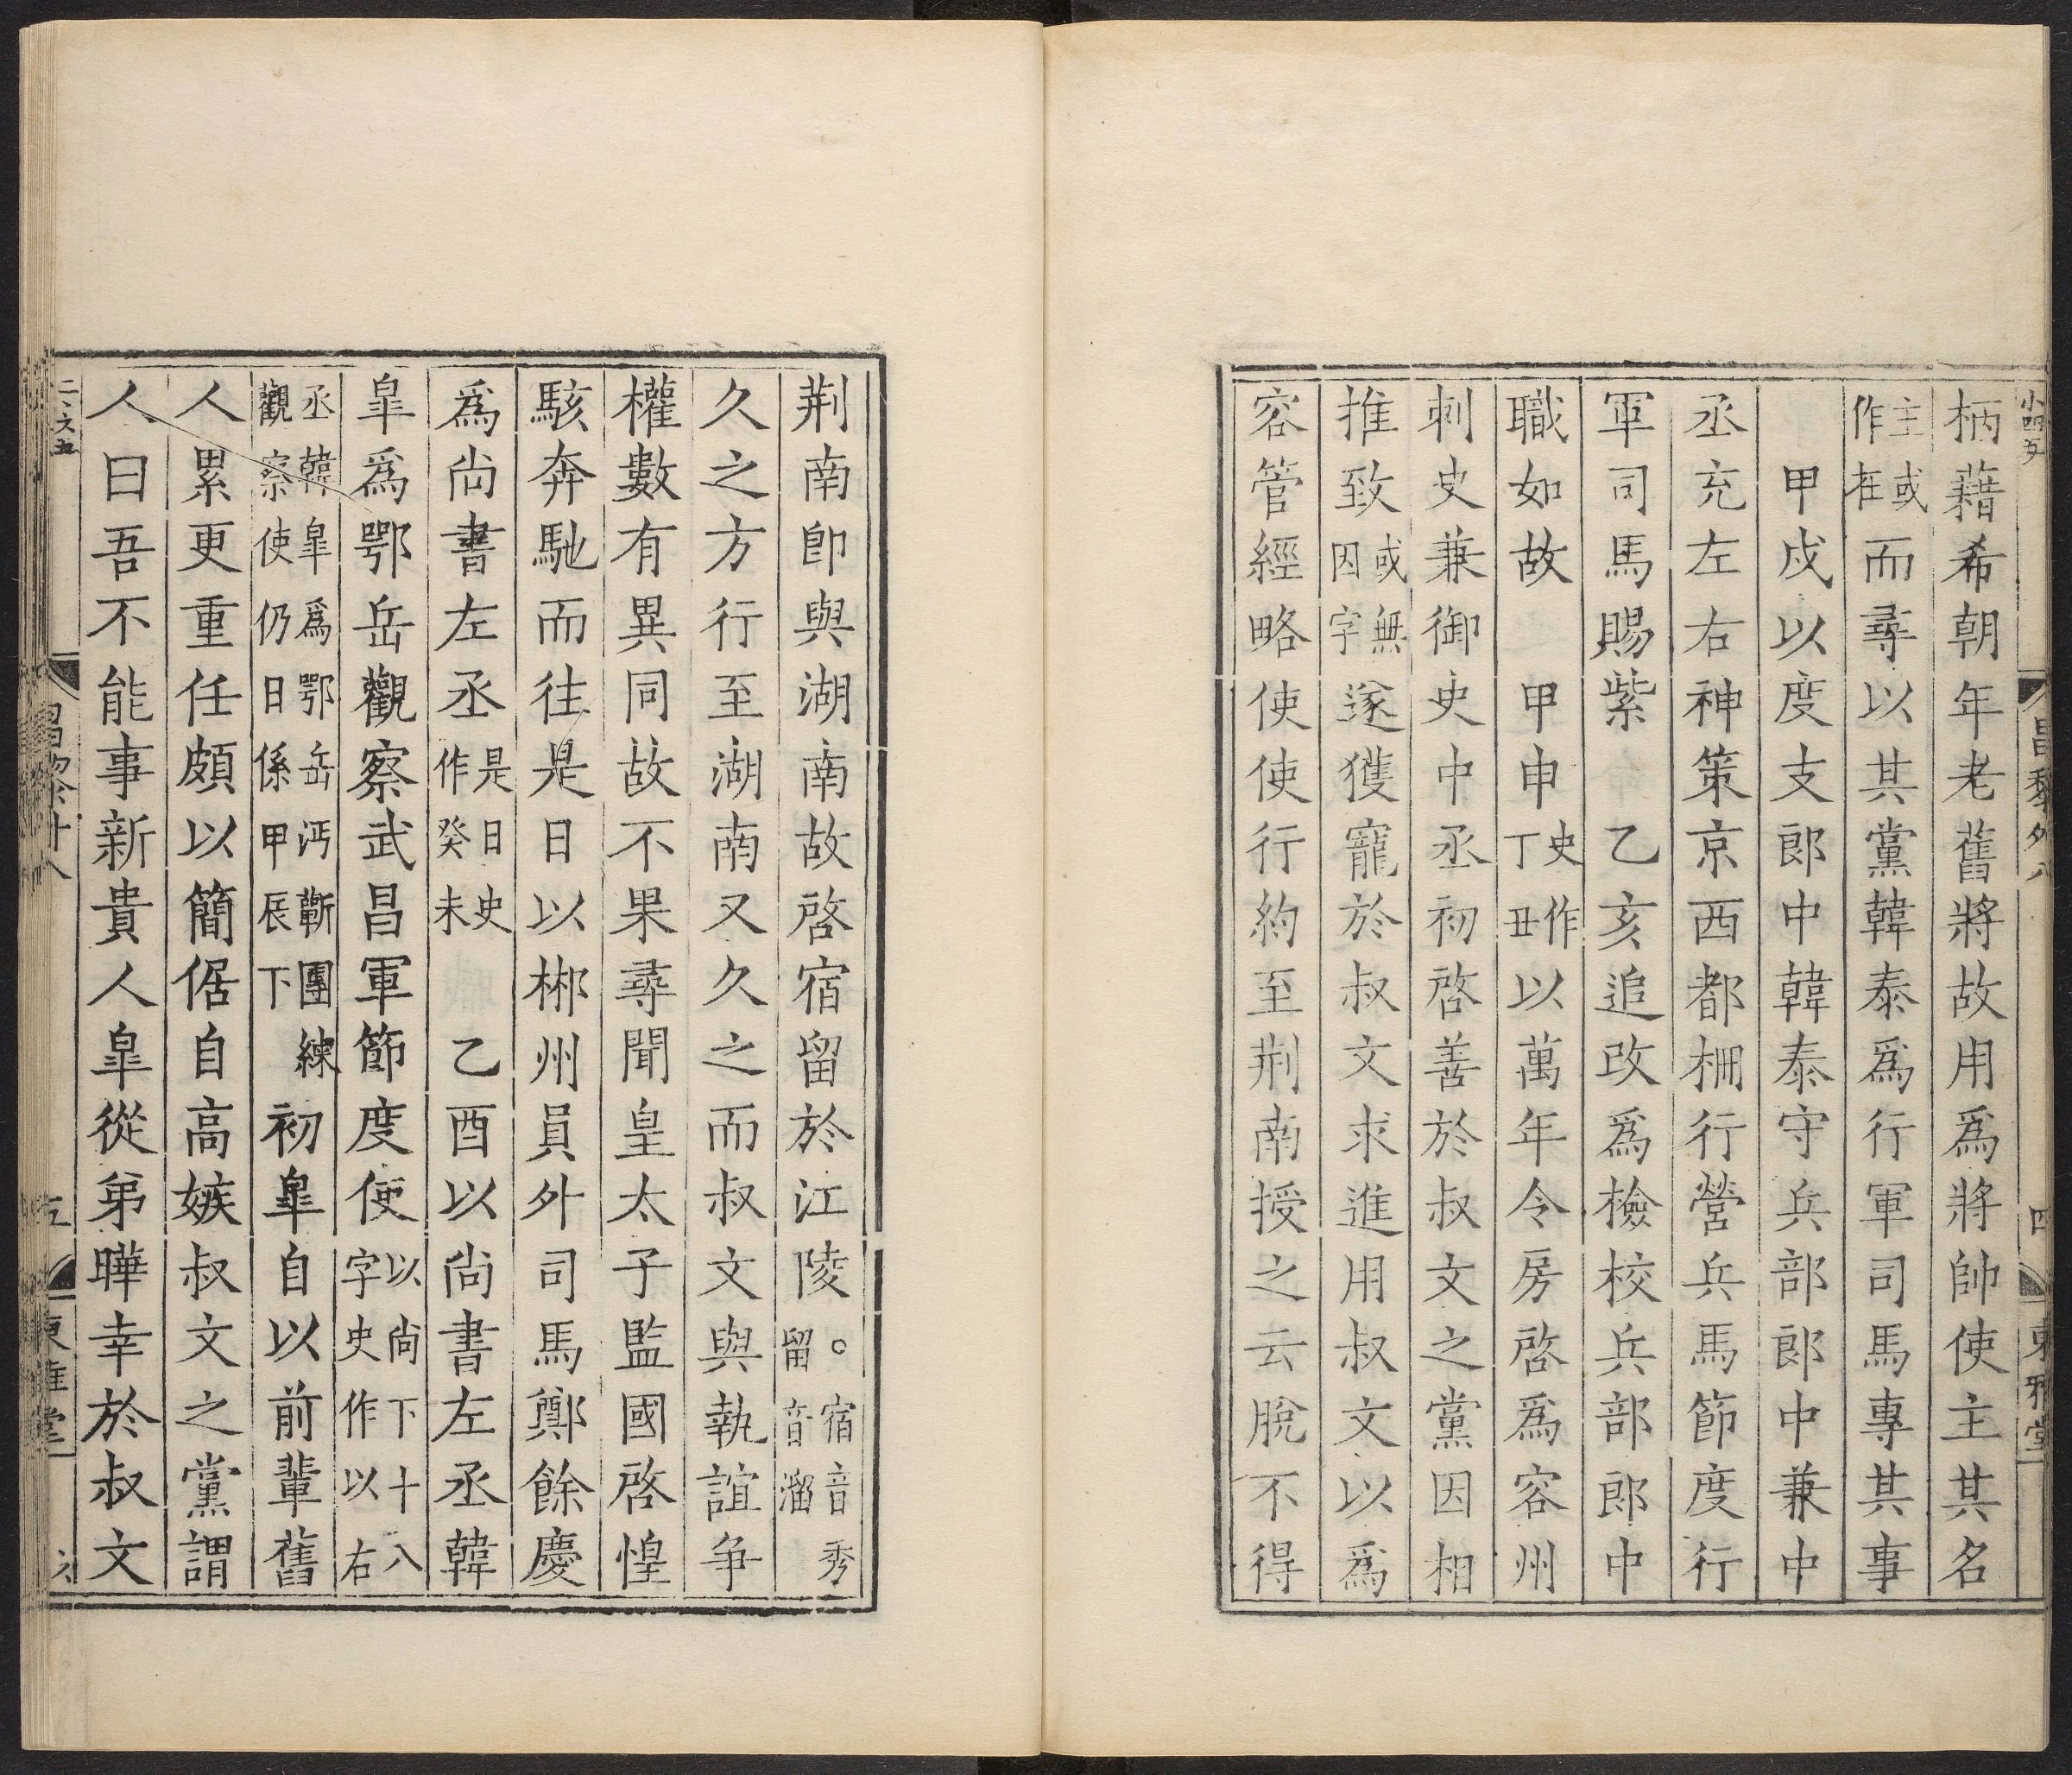 柄藉希朝年老舊將故用爲將帥使主其名
主或作在而尋以其黨韓泰爲行軍司馬專其事
甲戌以度支郎中韓泰守兵部郎中兼中
丞充左右神策京西都柵行營兵馬節度行
軍司馬賜紫 乙亥追改爲檢校兵部郎中
職如故 甲申史作丁丑以萬年令房啓爲容州
刺史兼御史中丞初啓善於叔文之黨因相
推致或無因字遂獲寵於叔文求進用叔文以爲
容管經略使使行約至荆南授之云脫不得
荆南卽與湖南故啓宿留於江陵。宿音秀留音溜
久之方行至湖南又久之而叔文與執誼争
權數有異同故不果尋聞皇太子監國啓惶
駭奔馳而往是日以郴州員外司馬鄭餘慶
爲尚書左丞是日史作癸未 乙酉以尚書左丞韓
皐爲鄂岳觀察武昌軍節度使以尚下十八字史作以右
丞韓皐爲鄂岳沔蘄團練觀察使仍日係甲辰下 初皐自以前輩舊
人累更重任頗以簡倨自高嫉叔文之黨謂
人曰吾不能事新貴人皐從弟曄幸於叔文
昌黎外八
四
東雅堂
五
東雅堂